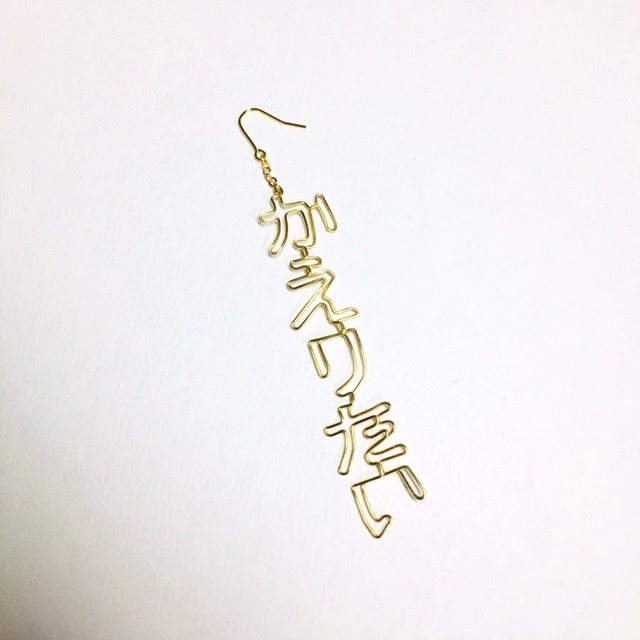 かえりたい